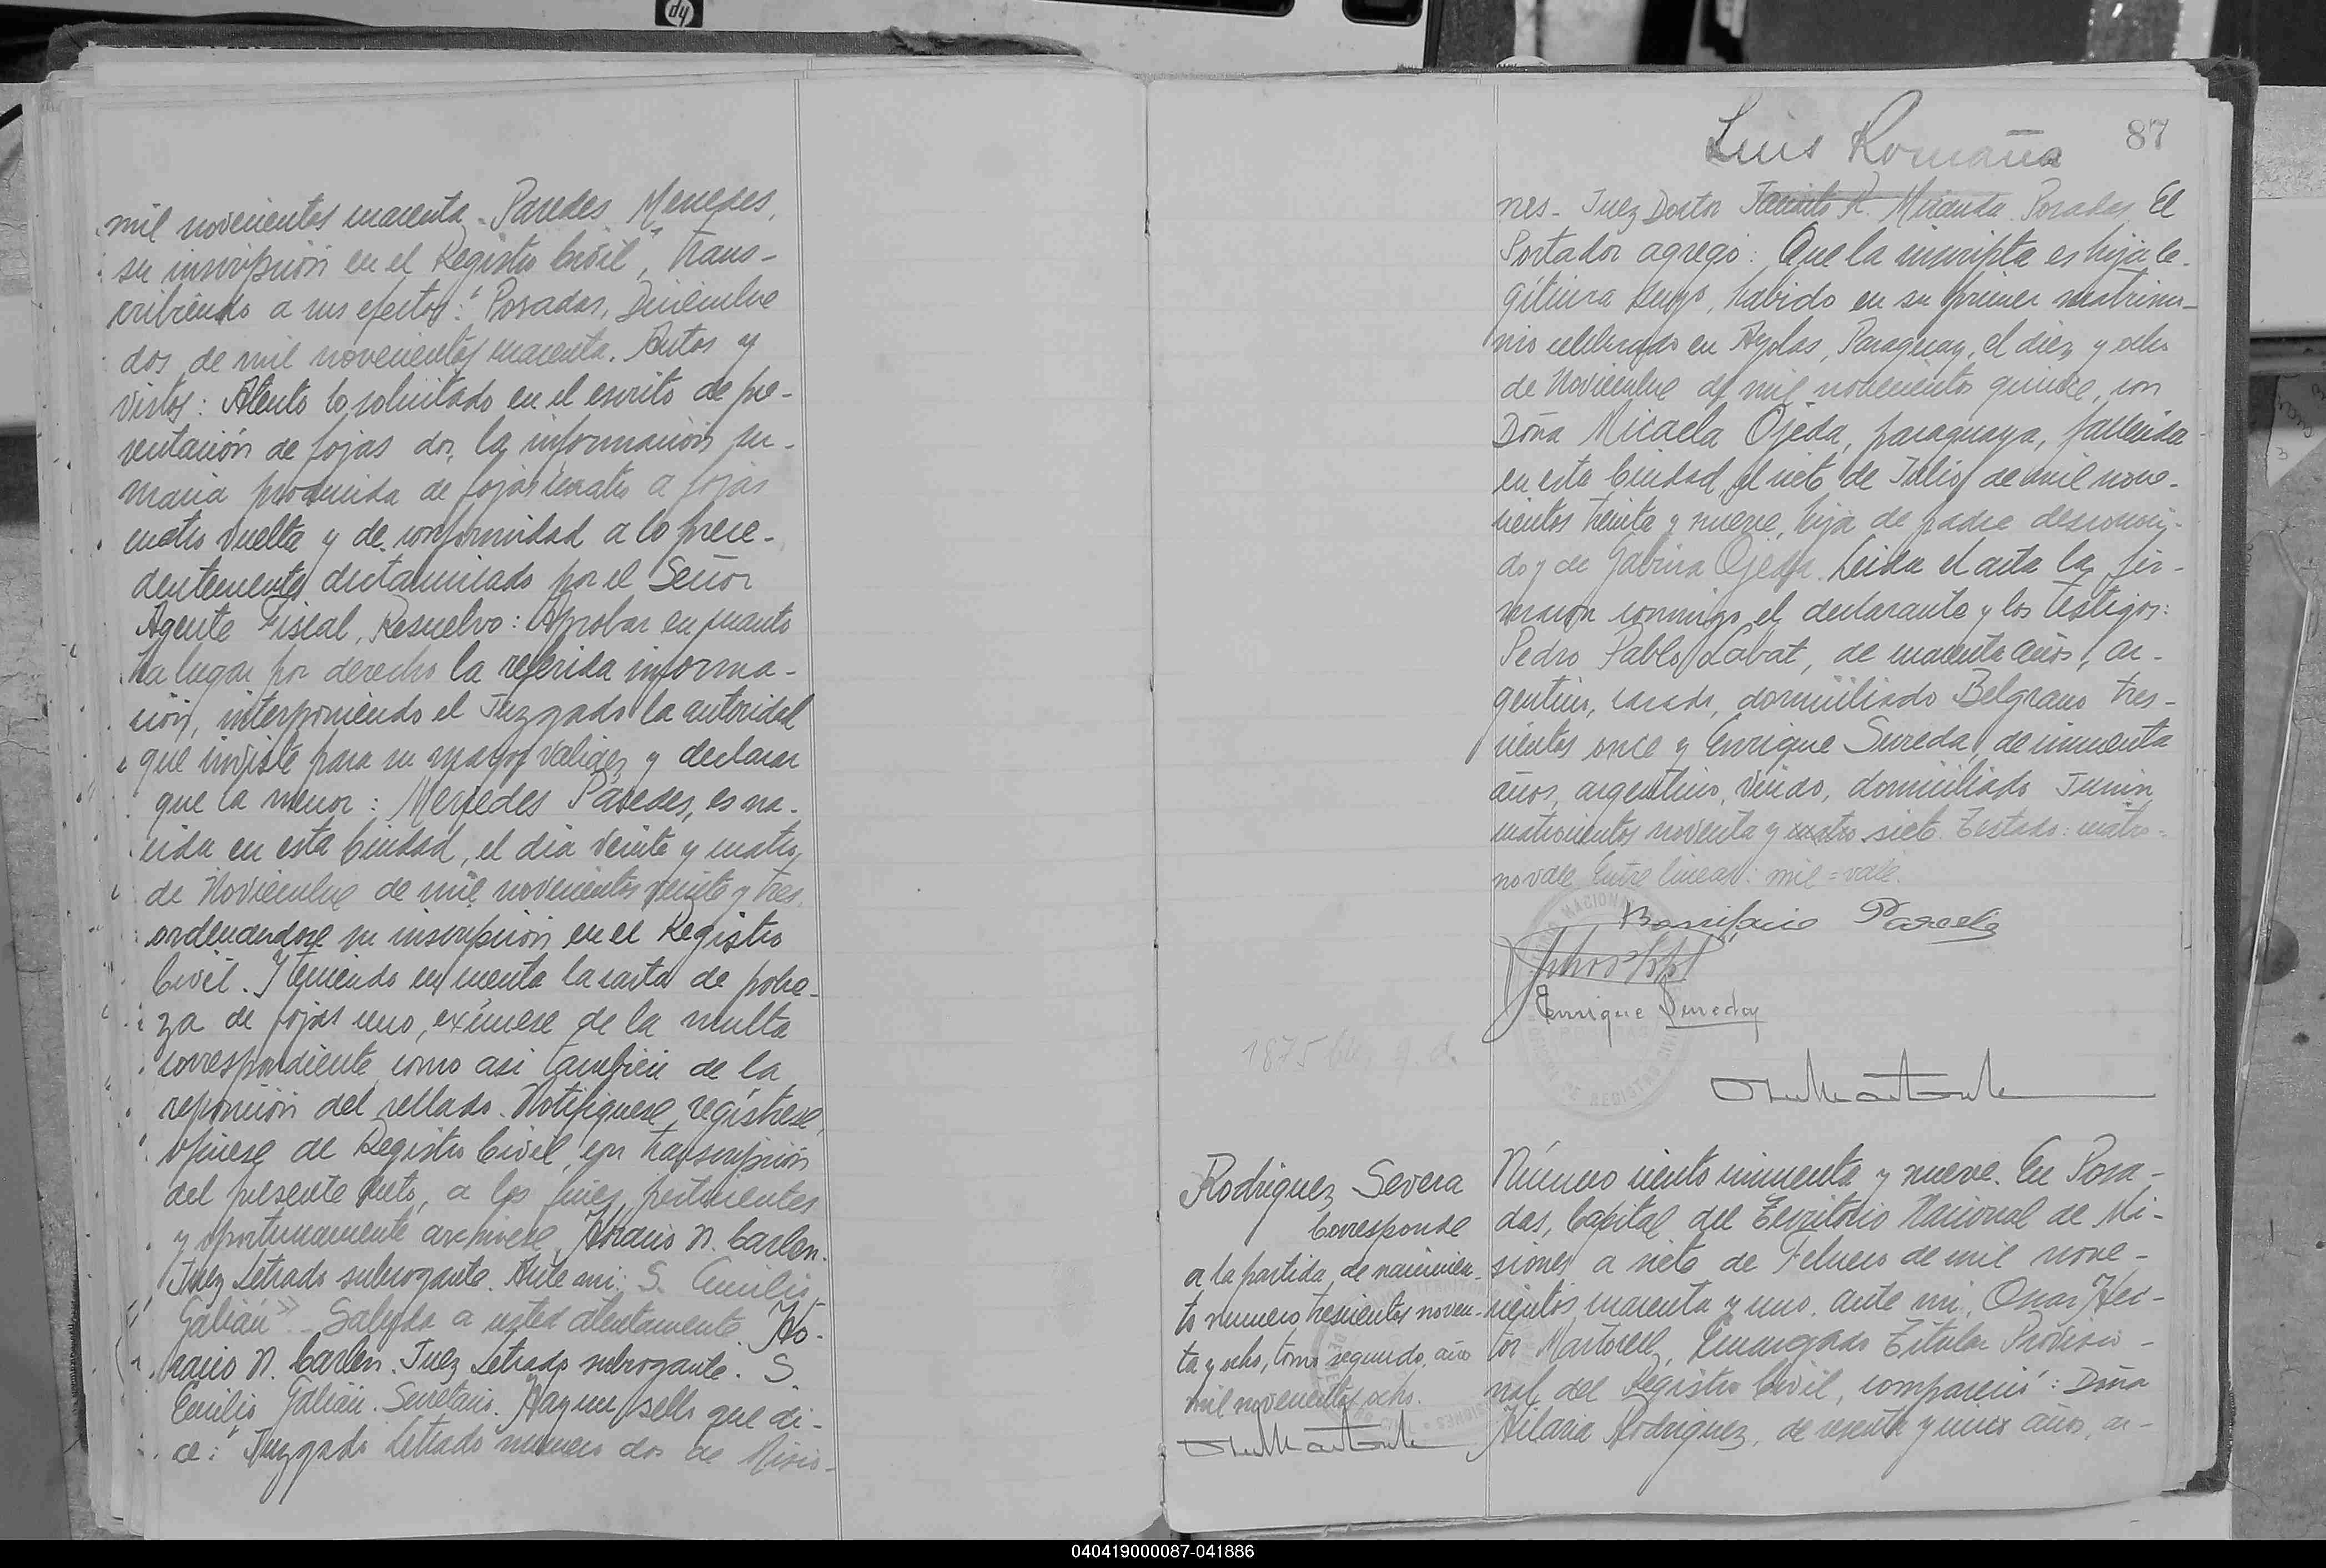 mil novecientos cuarenta. Paredes Mercedes,
su inscripción en el Registro Civil", trans-
cribiendo a sus efectos: "Posadas, Diciembre
dos de mil novecientos cuarenta. Autos y
vistos: Atento lo solicitado en el escrito de pre-
sentación de fojas dos, la información su-
maria producida de fojas cuatro a fojas
cuatro vuelta y de conformidad a lo prece-
dentemente dictaminado por el Señor
Agente Fiscal, Resuelvo: Aprobar en cuanto
ha lugar por derecho la referida informa-
ción, interponiendo el Juzgado la autoridad
que inviste para su mayor validez y declarar
que la menor: Mercedes Paredes, es na-
cida en esta Ciudad, el dia veinte y cuatro
de Noviembre de mil novecientos veinte y tres,
ordenandose su inscripción en el Registro
Civil. Y teniendo en cuenta la carta de pobre-
za de fojas uno, exímese de la multa
correspondiente como asi tambien de la
reposición del sellado. Notifiquese, regístrese,
ofíciese de Registro Civil, con transcripción
del presente auto, a los fines pertinentes
y oportunamente archivese. Horacio N. Carlen.
Juez Letrado subrogante. Ante mi: S. Emilio
Galián" - Saludo a usted atentamente. Ho-
racio N. Carlen. Juez Letrado subrogante. S.
Emilio Galián. Secretario. Hay un sello que di-
ce: "Juzgado Letrado número dos de Misio-
87
Luis Romaña
nes - Juez Doctor Jacinto R. Miranda. Posadas. El
Portador agregó: Que la inscripta es hija le-
gítima suya, habido en su primer matrimo-
nio celebrado en Ayolas, Paraguay, el diez y ocho
de Noviembre de mil novecientos quince, con
Doña Micaela Ojeda, paraguaya, fallecida
en esta Ciudad, el siete de Julio de mil nove-
cientos treinta y nueve, hija de padre desconoci-
do y de Gabina Ojeda. Leida el acta la fir-
maron conmigo el declarante y los testigos:
Pedro Pablo Labat, de cuarenta años, ar-
gentino, casado, domiciliado Belgrano tres-
cientos once y Enrique Sureda, de cincuenta
años, argentino, viudo, domiciliado Junin
cuatrocientos noventa y cuatro siete. Testado: cuatro=
no vale. Entre lineas: mil = vale.
Bonifacio Paredes
Enrique Sureda
1875
Rodriguez Severa
Corresponde
a la partida de nacimien-
to numero trescientos noven-
ta y ocho, tomo segundo, año
mil novecientos ocho.
Número ciento cincuenta y nueve. En Posa-
das, Capital del Territorio Nacional de Mi-
siones a siete de Febrero de mil nove-
cientos cuarenta y uno, ante mi, Oscar Hec-
tor Martorell, Encargado Titular Proviso-
nal del Registro Civil, compareció: Doña
Hilaria Rodriguez, de sesenta y cinco años, ar-
040419000087-041886